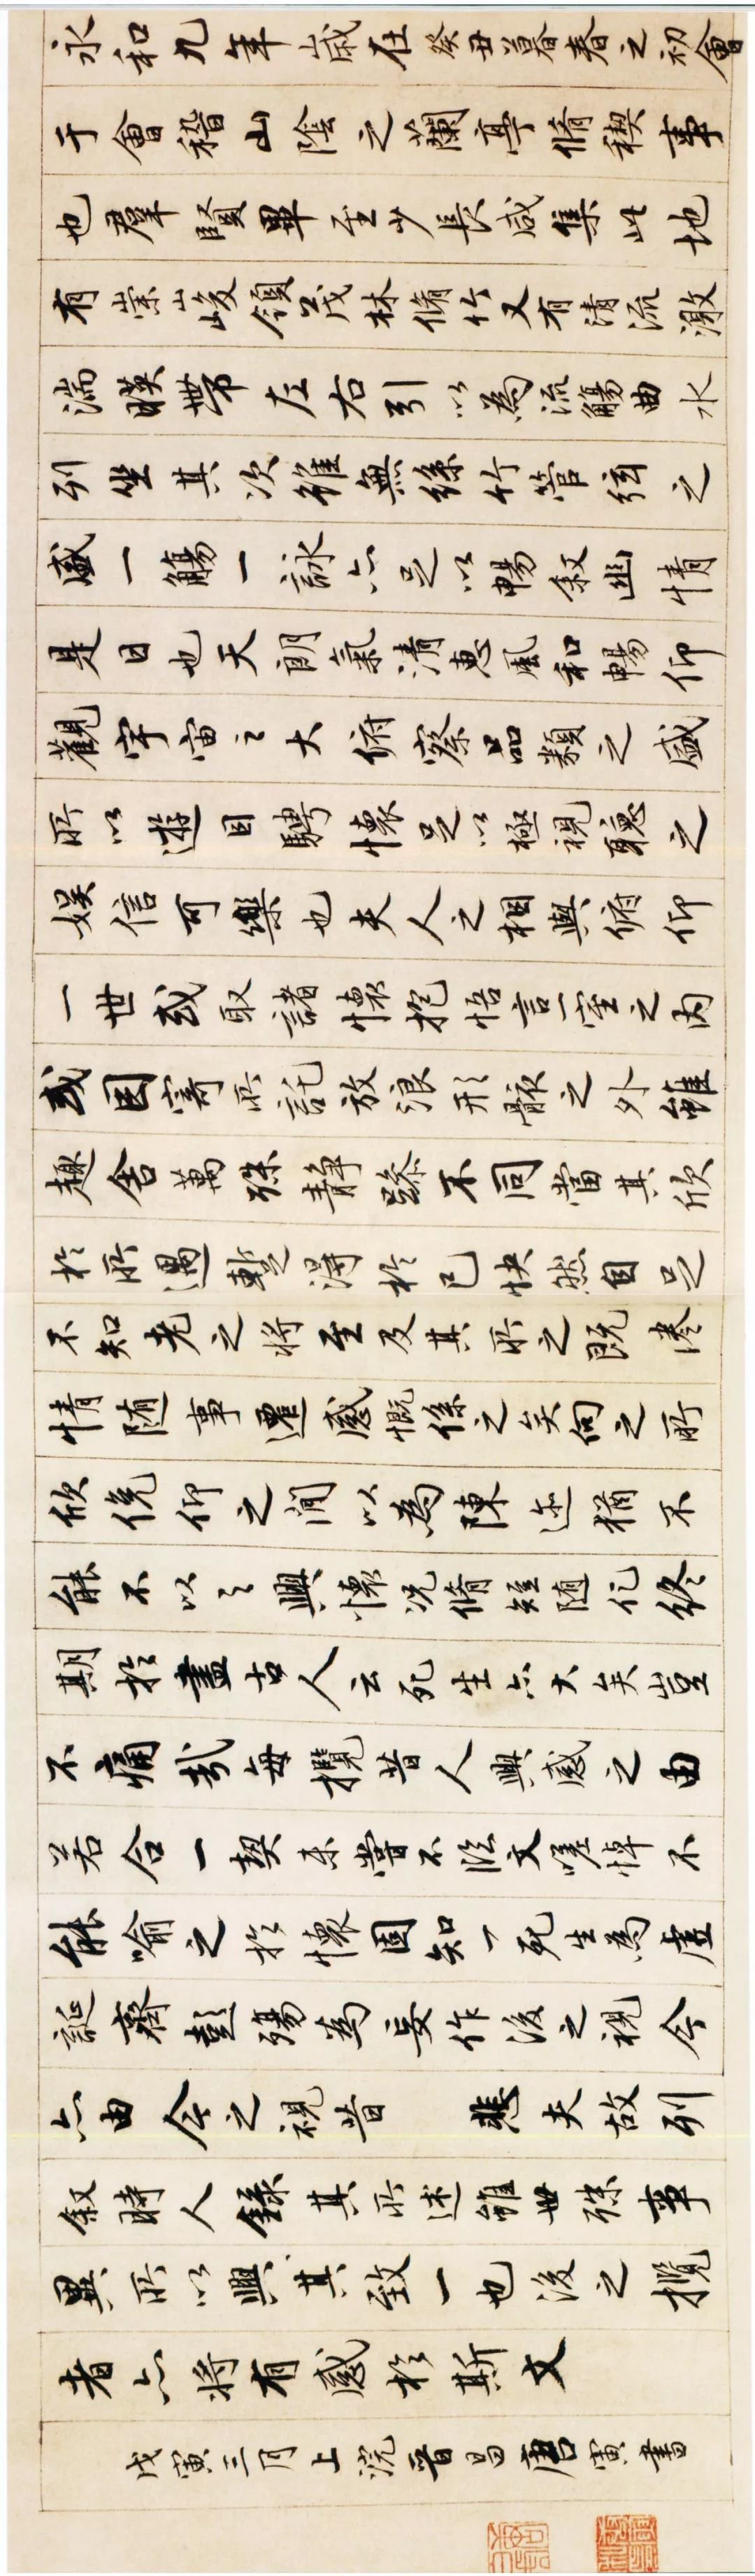 永和九年歲在癸丑暮春之初會
于會稽山陰之蘭亭脩稧事
也羣賢畢至少長咸集此地
有崇山峻領茂林脩竹又有清流激
湍暎帶左右引以為流觴曲水
列坐其次雖無絲竹管弦之
盛一觴一詠亦足以暢叙幽情
是日也天朗氣清惠風和暢仰
觀宇宙之大俯察品類之盛
所以遊目騁懷足以極視聽之
娛信可樂也夫人之相與俯仰
一世或取諸懷抱悟言一室之內
或因寄所託放浪形骸之外雖
趣舍萬殊靜躁不同當其欣
於所遇暫得於己快然自足
不知老之將至及其所之既惓
情随事遷感慨係之矣向之所
欣俛仰之間以為陳迹猶不
能不以之興懷況脩短随化終
期於盡古人云死生亦大矣豈
不痛哉每攬昔人興感之由
若合一契未嘗不臨文嗟悼不
能喻之於懷固知一死生為虛
誕齊彭殤為妄作後之視今
亦由今之視昔 悲夫故列
叙時人錄其所述雖世殊事
異所以興其致一也後之攬
者亦將有感於斯文
戊寅三月上浣晉昌唐寅書